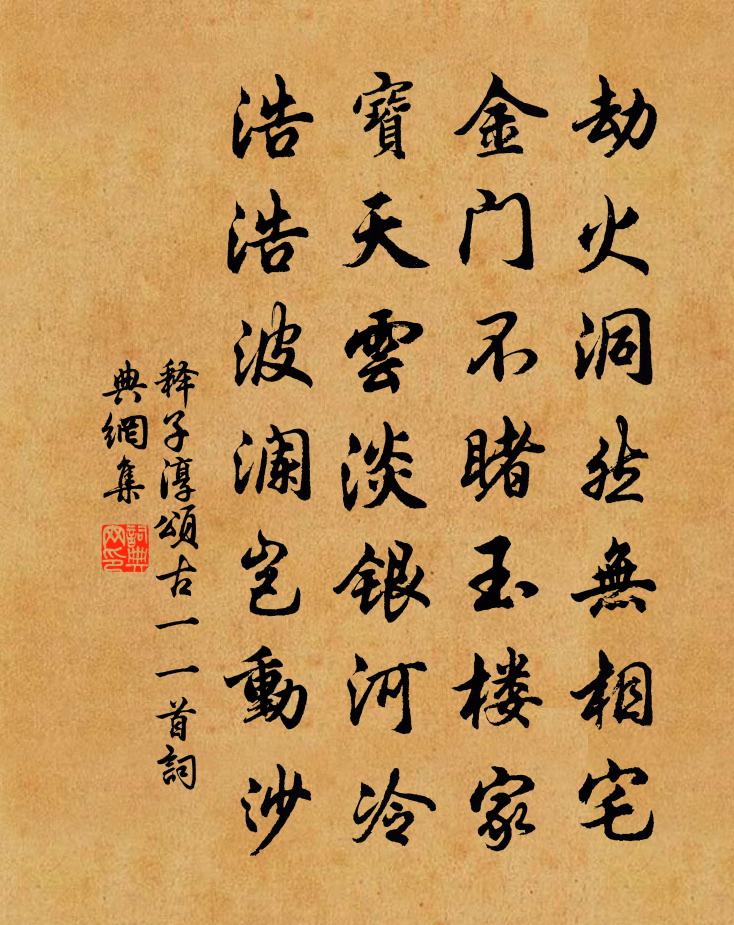 劫火洞然無相宅
金门不睹玉楼家
寶天雲淡银河冷
浩浩波澜岂動沙
释子淳頌古一一首詞
典網集
詞典
网印